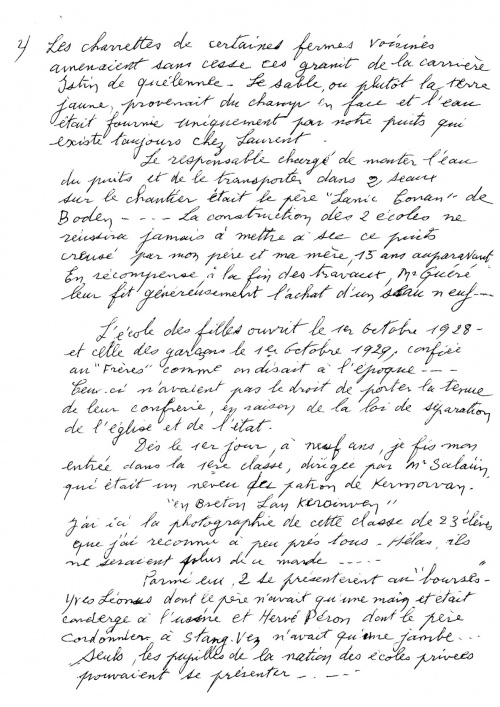 2) Les charrettes de certaines fermes voisines
amenaient sans cesse ces granit de la carrière
Istin de quélennec - Le sable, ou plutôt la terre
jaune, provenait du champ en face et l'eau
était fournie uniquement par notre puits qui
existe toujours chez Laurent.
Le responsable chargé de monter l'eau
du puits et de le transporter dans 2 seaux
sur le chantier était le père "Lanic Conan" de
Boden - - - - La construction des 2 écoles ne
réussira jamais à mettre à sec ce puits
creusé par mon père et ma mère, 15 ans auparavant
En récompense à la fin des travaux, Mr Guéré
leur fit généreusement l'achat d'un seau neuf --
L'école des filles ouvrit le 1er Octobre 1928-
et celle des garçons le 1er Octobre 1929, confiée
au "Frères" comme on disait à l'époque ----
Ceux-ci n'avaient pas le droit de porter la tenue
de leur confrérie, en raison de la loi de séparation
de l'église et de l'état.
Dès le 1er jour, à neuf ans, je fis mon
entrée dans la 1ère classe, dirigée par Mr Salaün,
qui était un neveu du patron de Kermorvan.
"en Breton Lan Keroinven"
J'ai ici la photographie de cette classe de 23 élèves
que j'ai reconnu à peu près tous - Hélas, ils
ne seraient plus de ce monde -----
Parmi eux, 2 se présentèrent au "bourses"-
Yves Léonus dont le père n'avait qu'une main et était
concierge à l'usine et Hervé Péron dont le père
Cordonnier à Stang-Vez n'avait qu'une jambe...
Seuls, les pupilles de la nation des écoles privées
pouvaient se présenter -----